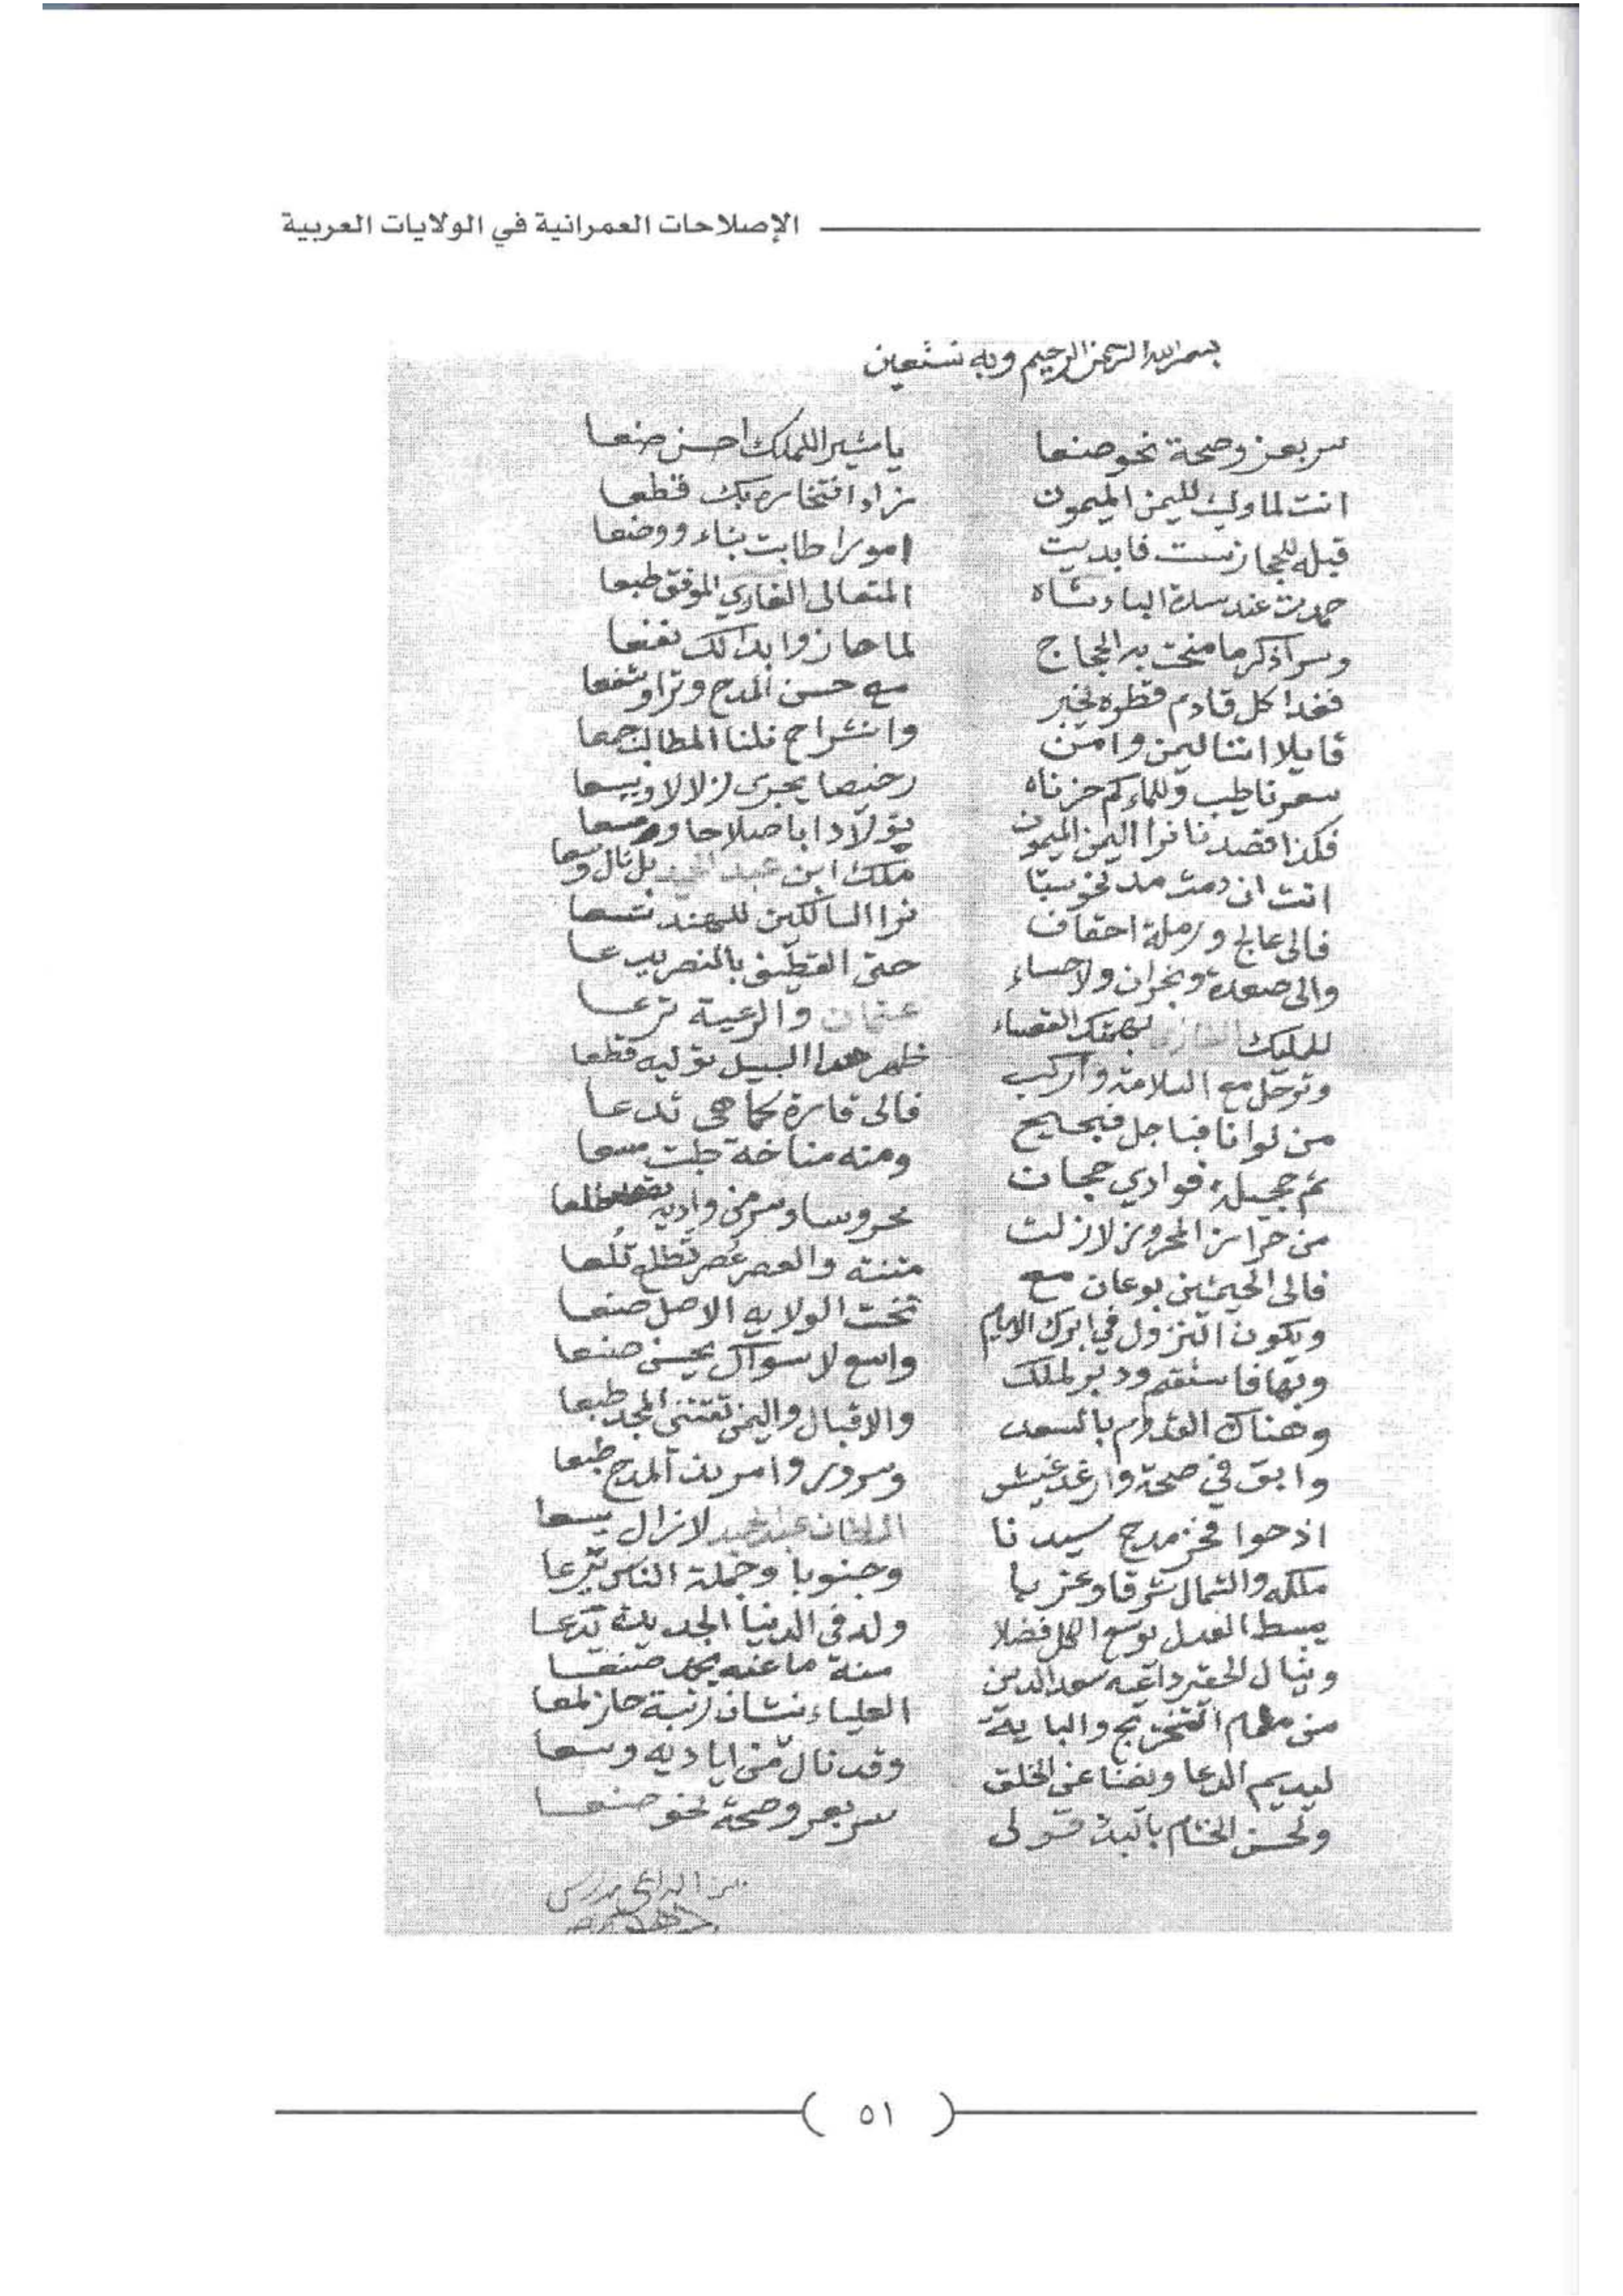 الإصلاحات العمرانية في الولايات العربية
بسم الله الرحمن الرحيم وبه نستعين
سر بعز وصحة نحو صنعا يا مشير الملك احسن صنعا
انت لما وليت لليمن الميمون زاد افتخاره بك قطعا
قبله للحجاز فابديت امورا طابت بناء ووضعا
حمدت عند سدة الباد شاه المتعالى الغازي الموفق طبعا
وسرا ذكر ما منحت به الحجاج لما حازوا بذالك نفعا
فغدا كل قادم قطره يخبر مع حسن المدح وترا وشفعا
قايلا اننا ليمن وامن وانشراح نلنا المطالب جمعا
سعرنا طيب وللماء كم حزناه رخيصا يجرى زلالا ويسعا
فكذا قصدنا نرا اليمن الميمون
انت ان دمت ملك ابن عبد المجيد بل نال وسعا
فالى عالج ورملة احقاف نرا السالكين للهند تسعا
والى صعدة ونجران ولاحساء حتى القطيف بالنصر يدعا
للمليك الغازي عثمان والرعية ترعا
وترحل مع السلامة واركب ظهر هذا السبيل توليه قطعا
من لوانا فبا جل فبحيح فالى قارة كما هى تدعا
ثم حجيلة فوادي حجان ومنه مناخة
من حراز المحروز لازلت محروسا
فالى الحيمتين بوعان مع متنه والعصر عصر تطلع تلعا
ويكون النزول في ابرك الايام تحت الولايه الاصل صنعا
وبها فاستقم ودبر لملك واسع لا سواك يحسن صنعا
وهناك القدوم بالسعد والاقبال واليمن تقتنى المجد طبعا
وابق في صحة وارغد عيش وسرور المدح طبعا
اذ حوا فخز مدح سيدنا السلطان عبد الحميد لا زال يسعا
ملكه والشمال شرقا وغربا وجنوبا وجملة الناس
يبسط العدل يوسع الكل فضلا وله في الدنيا
وينال الحقير داعيه سعد الدين منة ما عنه
من مقام العلياء نشان رتبة حاز لمعا
ليديم الدعا عن الخلق وقد نال من اياديه وسعا
ولحسن الختام قولى سر بعز وصحة نحو صنعا
الداعي مدرس
٥١